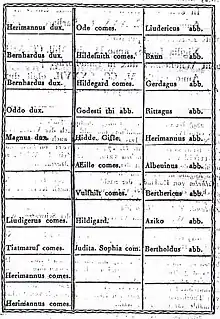 Herimannus dux. Ode comes. Liudericus abb.
Bernhardus dux. Hildesuith comes. Brun abb.
Bernhardus dux. Hildegard comes. Gerdagus abb.
Oddo dux. Godesti thi abb. Rittagus abb.
Magnus dux. Hidde. Gisle. Herimannus abb.
Æille comes. Albuinus abb.
Vulfhilt comes. Berthericus abb.
Liudigerus comes. Hildigard. Aziko abb.
Tiatmarus comes. Judita. Sophia com. Bertholdus abb.
Herimannus comes.
Herimannus comes.